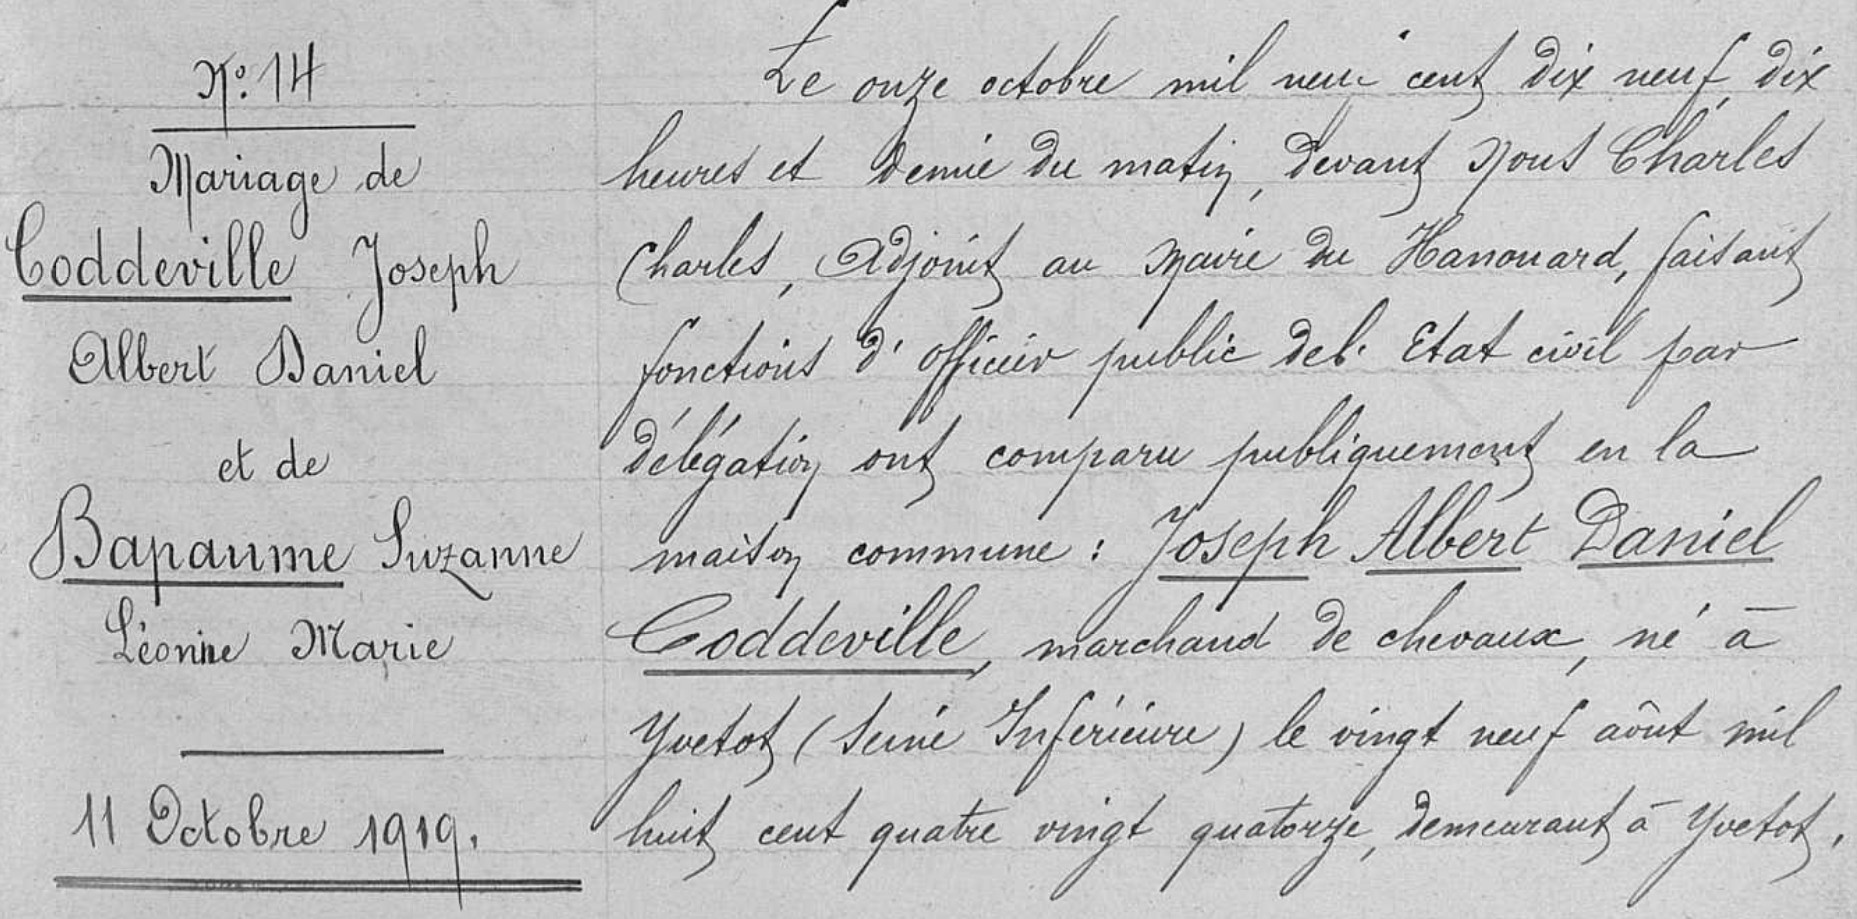 N°. 14
Mariage de
Coddeville Joseph
Albert Daniel
et de
Bapaume Suzanne
Léonine Marie
11 Octobre 1919.
Le onze octobre mil neuf cent dix neuf, dix
heures et demie du matin, devant Nous Charles
Charles, Adjoint au Maire du Hanouard, faisant
fonctions d'officier public del'Etat civil par
délégation ont comparu publiquement en la
maison commune : Joseph Albert Daniel
Coddeville, marchand de chevaux, né à
Yvetot (Seine Inférieure) le vingt neuf août mil
huit cent quatre vingt quatorze, demeurant à Yvetot,